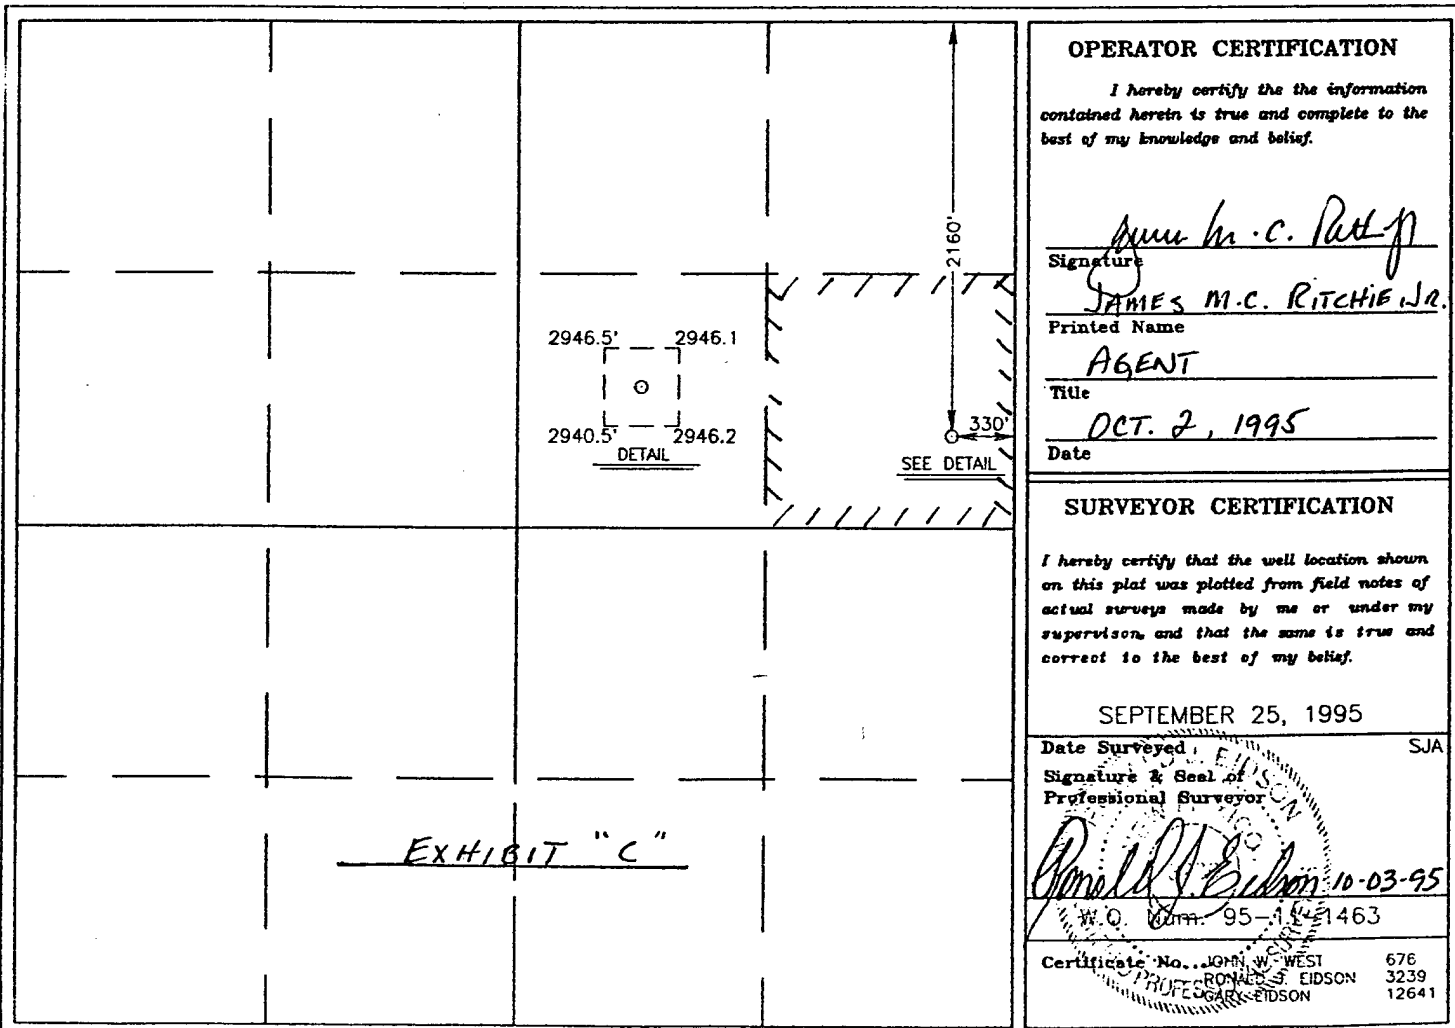 2160'
2946.5' 2946.1
2940.5' 2946.2
DETAIL
330'
SEE DETAIL
EXHIBIT "C"
OPERATOR CERTIFICATION
I hereby certify the the information
contained herein is true and complete to the
best of my knowledge and belief.
Signature
JAMES M.C. RITCHIE, JR.
Printed Name
AGENT
Title
OCT. 2, 1995
Date
SURVEYOR CERTIFICATION
I hereby certify that the well location shown
on this plat was plotted from field notes of
actual surveys made by me or under my
supervison, and that the same is true and
correct to the best of my belief.
SEPTEMBER 25, 1995
Date Surveyed SJA
Signature & Seal of
Professional Surveyor
Ronald J. Eidson 10-03-95
W.O. Num. 95-11-1463
Certificate No. JOHN W. WEST 676
RONALD J. EIDSON 3239
GARY EIDSON 12641